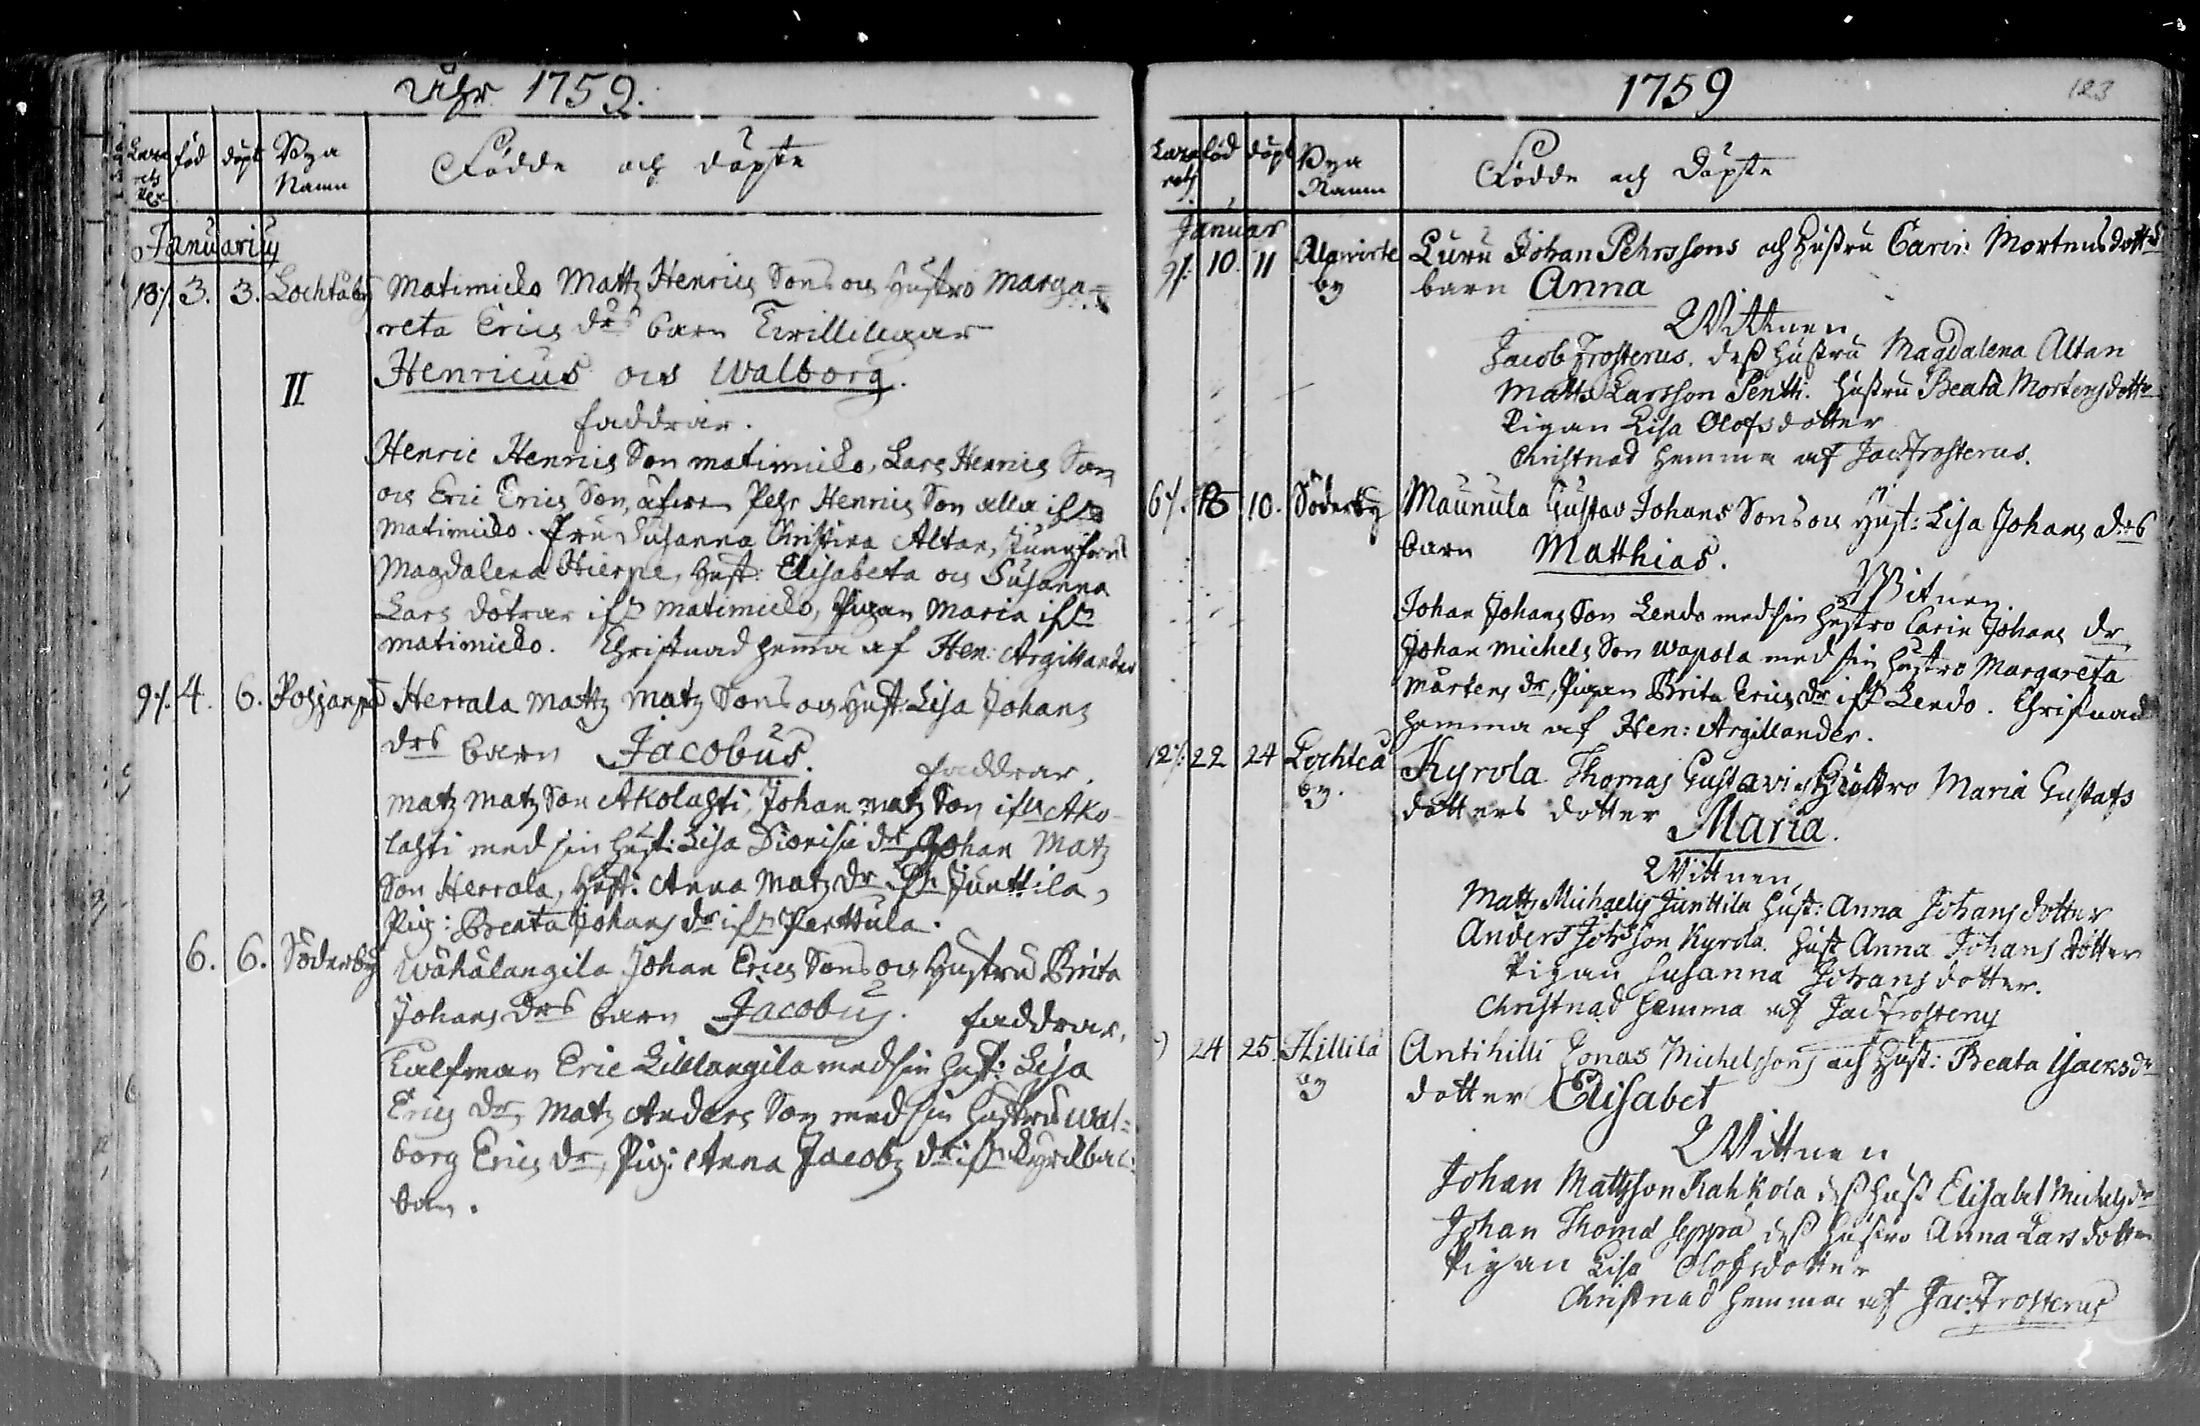 Åhr 1759.
fod döpt Bya
Namn
Födde och döpte
Januarius
13/. 3. 3. Lochtåby Matimicko Mattz Henrics Sons och Hustro Marga=
reta Erics drs barn Twillingar
II Henricus och Walborg.
faddrar.
Henric Henrics Son matimicko, Lars Henrics Son
och Eric Erics Son, äfven Pehr Henrics Son alla ifr
Matimicko. fru Susanna Christina Altan, Jungfrur
Magdalena Hierpe, Hust: Elisabeta och Susanna
Lars dötrar ifrn matimicko, Pigan Maria ifrn
matimicko. Christnad hemma af Hen: Argillander
9/. 4. 6. Pohjanpä Herrala Mattz Matz Sons och Hust: Lisa Johans
drs barn Jacobus. faddrar.
Matz Matz Son Akolahti, Johan matz Son ifrn Ako-
lahti med sin hust: Lisa Dionisii dr Johan Matz
Son Herrala, Hust: Anna Matz dr Junttila,
Pig: Breata Johans dr ifrn Perttula.
6. 6. Söderby Wähälangila Johan Erics Sons och Hustru Brita
Johans Drs barn Jacobus. faddrar,
Eric Lilllangila med sin hust: Lisa
Erics Dr, Matz Anders Son med sin hustru Wal=
borg Erics Dr, Pig: Anna Jacobz dr ifrn
1759
123
fod döpt Bya
Namn
Födde och Döpte
Januar
9/. 10. 11 Alawirte Luru Johan Pehrssons och hustru Carin Mortensdotters
by barn Anna
Wittnen
Jacob Frosterus. dess hustru Magdalena Altan
Matts Larsson Pentti. hustru Beata Mortensdotter
Pigan Lisa Olofsdotter
Christnad hemma af Jac Frosterus.
6/. 10. Söderby Maunula Gustav Johans Sons och Hust: Lisa Johans drs
barn Matthias.
Witnen.
Johan Johans Son Lendo med sin hustro Carin Johans dr
Johan Michels Son Wapola med sin hustro Margareta
Mårtens dr, Pigan Brita Erics dr ifrn Lendo. Christnad
hemma af Hen: Argillander.
12/. 22 24 Lochteå Kyrola Thomas Gustavi och Hustro Maria Gustafs
by. dotters dotter Maria.
Wittnen
Matts Michaelis Junttila hust: Anna Johansdotter
Anders Johsson Kyrola. hust Anna Johans dotter
Pigan Susanna Johansdotter.
Christnad hemma af Jac Frosterus
24 25. Hillilä Antihilli Jonas Michelssons och Hust: Beata Isacksdr
by dotter Elisabet
Wittnen
Johan Mattsson Kahkola dess hust Elisabet Michelsdr
Johan Thomæ Seppä dess hustro Anna Larsdotter
Pigan Lisa Olofsdotter
Christnad hemma af Jac: Frosterus